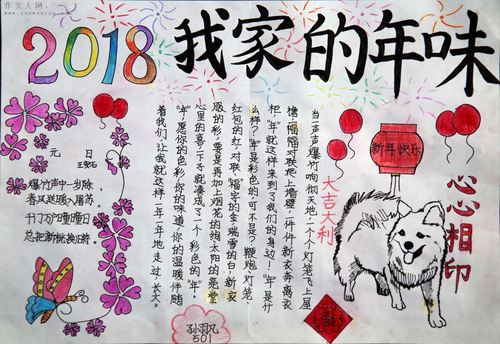 作文人网
2018 我家的年味
元 日
王安石
爆竹声中一岁除
春风送暖入屠苏
千门万户曈曈日
总把新桃换旧符。
当一声声爆竹响彻天地,一个个灯笼飞上屋
檐,一幅幅对联爬上墙壁,一件件新衣奔离衣
柜,“年”就这样来到了我们的身边!“年”是什
么样?“年”是彩色的,可不是?鞭炮、灯笼、
红包的红,对联、“福”字的金,瑞雪的白,新衣
服的彩,要是再加上烟花的绚,太阳的亮,堂
心里的喜,一下子就凑成了一个彩色的“年”。
“年”,愿你的色彩、你的味道、你的温暖伴随
着我们,让我就这样一年一年地走过,长大。
新年快乐
大吉大利
心心相印
501